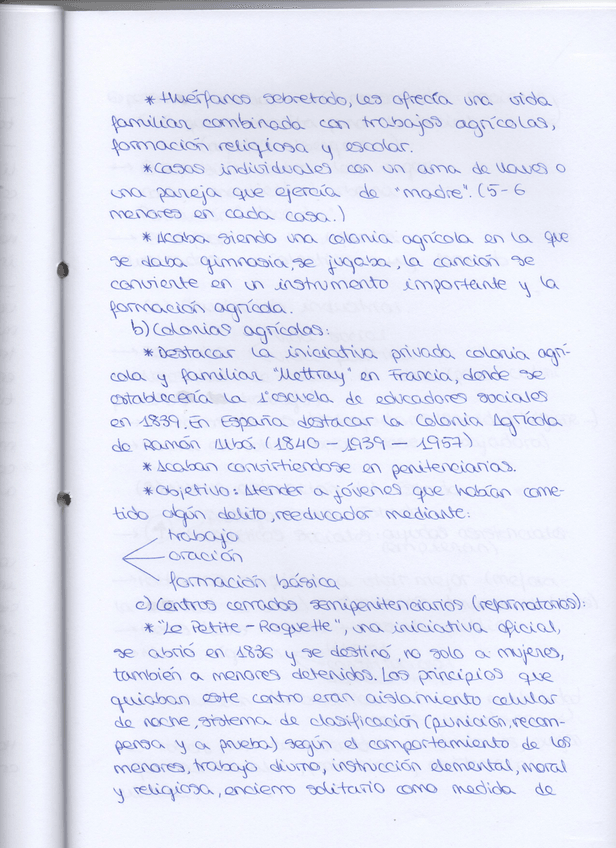 * Huérfanos sobretodo, les ofrecía una vida
familiar combinada con trabajos agrícolas,
formación religiosa y escolar.
* Casas individuales con un ama de llaves o
una pareja que ejercía de "madre". (5-6
menores en cada casa.)
* Acaba siendo una colonia agrícola en la que
se daba gimnasia, se jugaba, la canción se
conviente en un instrumento importante y la
formación agrícola.
b) Colonias agrícolas:
* Destacar la iniciativa privada colonia agrí-
cola y familiar "Mettray" en Francia, donde se
establecería la 1ª escuela de educadores sociales
en 1839. En España destacar la Colonia Agrícola
de Ramón Albó (1840 - 1939 - 1957)
* Acaban convirtiendose en penitenciarias.
* Objetivo: Atender a jóvenes que habían come-
tido algún delito, reeducador mediante:
trabajo
oración
formación básica
c) Centros cerrados semipenitenciarios (reformatorios):
* "Le Petite - Roquette", una iniciativa oficial,
se abrió en 1836 y se destinó, no solo a mujeres,
también a menores detenidos. Los principios que
guiaban este centro eran aislamiento celular
de noche, sistema de clasificación (punición, recom-
pensa y a prueba) según el comportamiento de los
menores, trabajo diurno, instrucción elemental, moral
y religiosa, encierro solitario como medida de